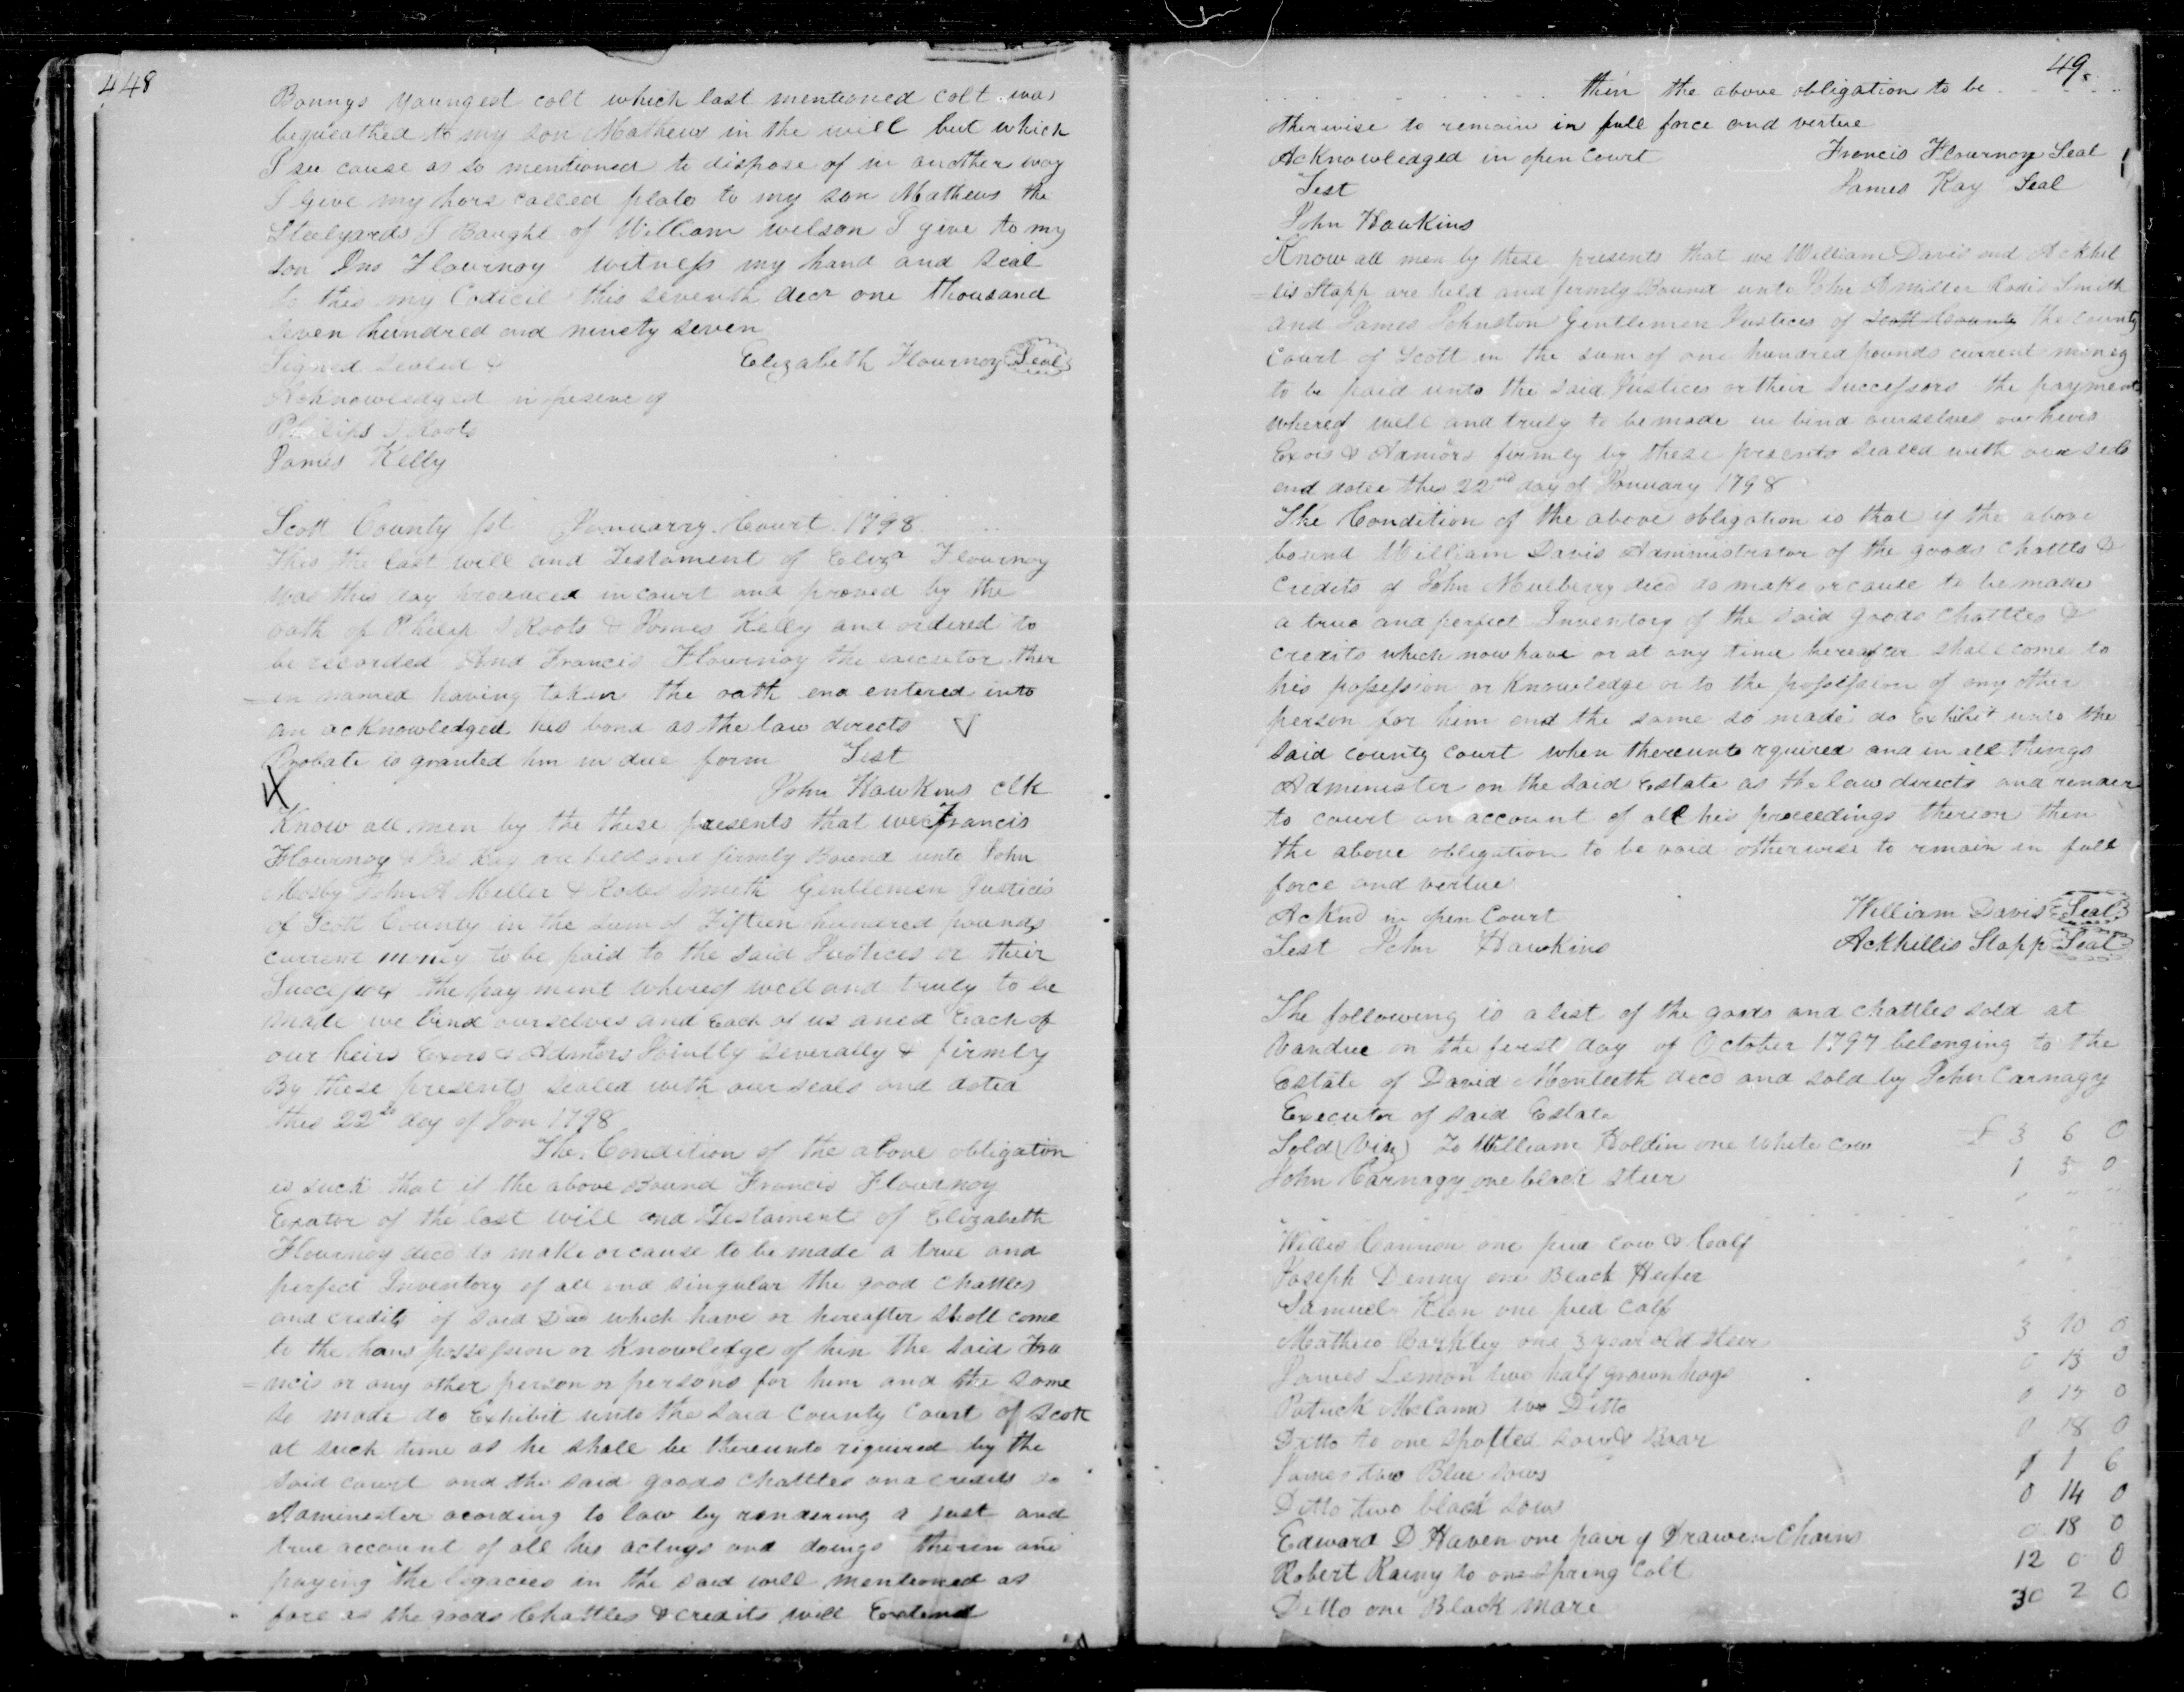 448
Bonnys youngest colt which last mentioned colt was
bequeathed to my son Mathews in the will but which
I see cause as so mentioned to dispose of in another way
I give my hors called plato to my son Mathews the
Steelyards I Baught of William wilson I give to my
son Jno Flournoy witness my hand and seal
to this my Codicil this seventh decr one thousand
seven hundred and ninety seven
Signed sealed & Elizabeth Flournoy Seal
Acknowledged in presenc of
Philips Roots
James Kelly
Scott County sst Januarry Court 1798
This the last will and Testament of Eliza Flournoy
was this day produced in court and proved by the
oath of Philip S Roots & James Kelly and ordered to
be recorded And Francis Flournoy the executor ther
=in named having taken the oath and entered into
an acknowledged his bond as the law directs
Probate is granted him in due form Test
John Hawkins clk
Know all men by the these presents that we Francis
Flournoy & Jas Kay are held and firmly Bound unto John
Mosby John A Miller & Rodes Smith Gentlemen Justices
of Scott County in the sum of Fifteen hundred pounds
current money to be paid to the said Justices or their
Successors the payment whereof well and truly to be
made we bind ourselves and Each of us aned Each of
our heirs Exors & Admors Jointly severally & firmly
By these presents sealed with our seals and dated
this 22d day of Jan 1798
The Condition of the above obligation
is such that if the above Bound Francis Flournoy
Exator of the last will and Testament of Elizabeth
Flournoy decd do make or cause to be made a true and
perfect Inventory of all and singular the good chattles
and credits of said Decd which have or hereafter shall come
to the hans possession or Knowledge of him the said Fra
=ncis or any other person or persons for him and the same
so made do Exhibit unto the said county court of Scott
at such time as he shall be thereunto riguired by the
said court and the said goods chattles and credits do
Administer acording to law by rendering a just and
true account of all his actings and doings therein and
paying the legacies in the said will mentioned as
fare as the goods Chattles & credits will Extend
49.
then the above obligation to be
otherwise to remain in full force and vertue
Acknowledged in open Court Francis Flournoy Seal
Test James Kay Seal
John Hawkins
Know all men by these presents that we William Davis and Ackhil
=lis Stapp are held and firmly Bound unto John A miller Rodes Smith
and James Johnston Gentlemen Justices of Scott County the county
Court of Scott in the sum of one hundred pounds current money
to be paid unto the said Justices or their successors the payment
whereof well and truly to be made we bind ourselves our heirs
Exors & Admors firmly by these presents sealed with our sels
and dated this 22nd day of January 1798
The Condition of the above obligation is that if the above
bound William Davis Administrator of the goods chattls &
credits of John Mulberry decd do make or cause to be made
a true and perfect Inventory of the said goods chattles &
credits which now have or at any time hereafter shall come to
his possession or Knowledge or to the possession of any other
person for him and the same so made do Exhibit unto the
said county court when thereunto rquired and in all things
Administer on the said Estate as the law directs and render
to court an account of all his proceedings thereon then
the above obligation to be void otherwise to rmain in full
force and vertue
Acknd in open Court William Davis Seal
Test John Hawkins Ackhillis Stapp Seal
The following is a list of the goods and chattles sold at
Vandue on the first day of October 1797 belonging to the
Estate of David Monteeth decd and sold by John Carnagy
Executor of said Estate
Sold (Viz) To William Holdin one white cow £ 3 6 0
John Carnagy one black steer 1 5 0
Willis Cannon one pied cow & Calf
Joseph Denny one Black Heifer
Samuel one pied calf
Mathew Barkley one 3 year old steer 3 10 0
James Lemon two half grown hogs 0 13 0
Patrick McCann two Ditto 0 15 0
Ditto to one spotted sow & Boar 0 18 0
James two Blue sows 1 1 6
Ditto two black sows 0 14 0
Edward D Haven one pair of Drawen Chains 0 18 0
Robert Rainy to one spring Colt 12 0 0
Ditto one Black mare 30 2 0